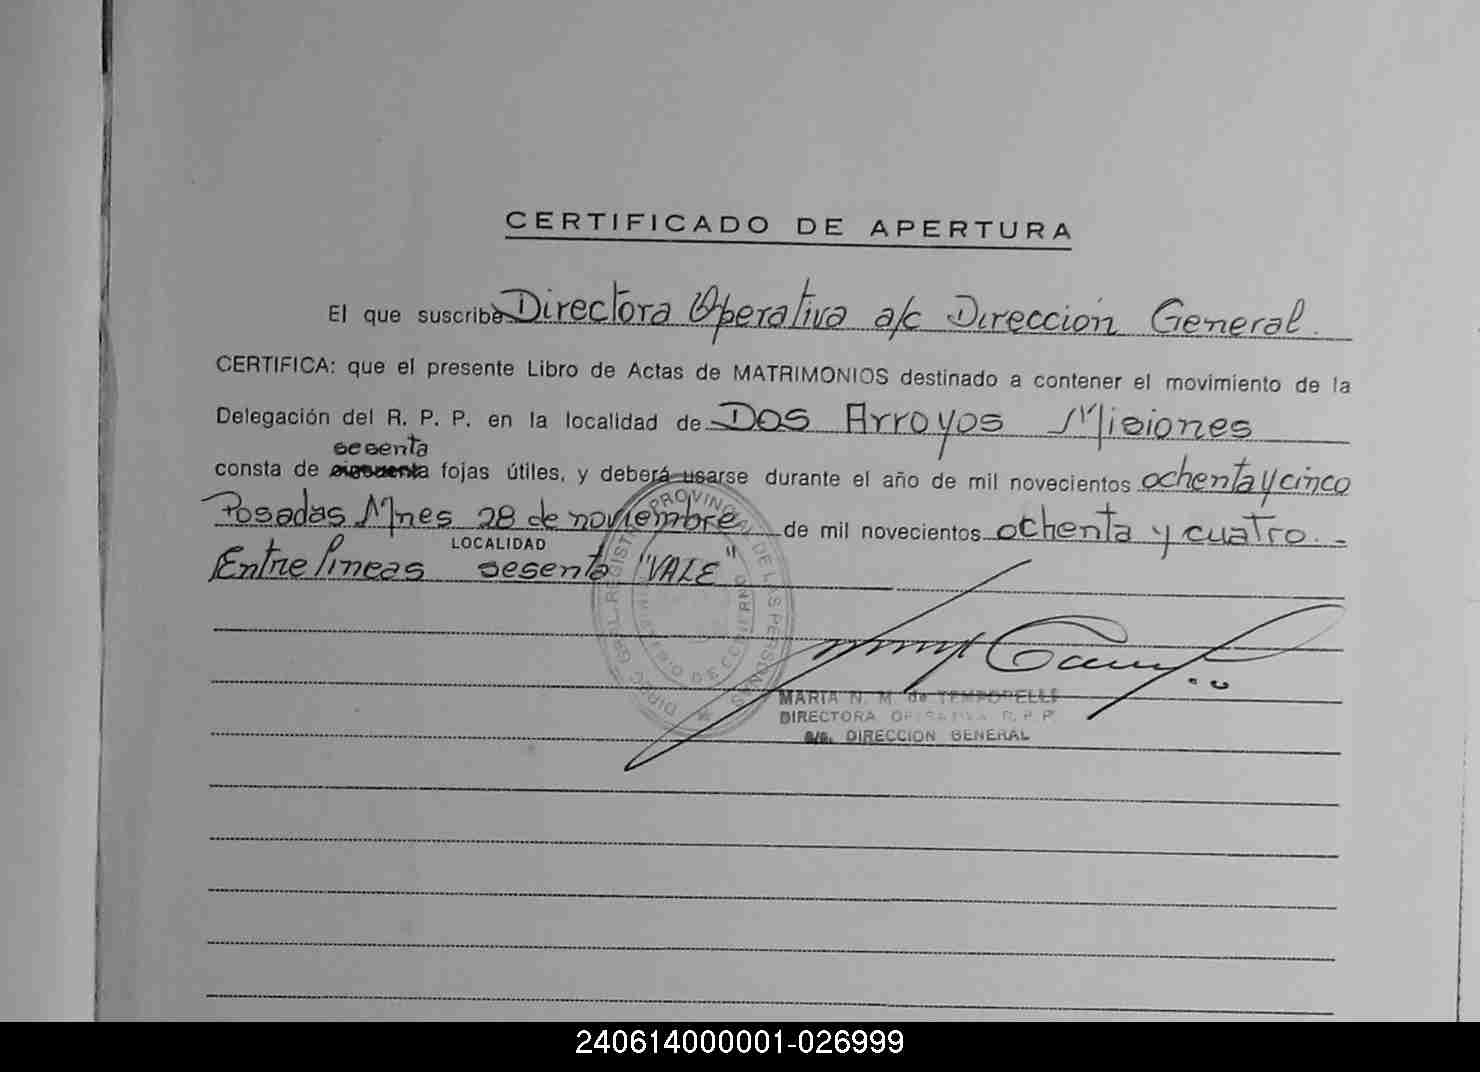 CERTIFICADO DE APERTURA
El que suscribe Directora Operativa a/c Dirección General.
CERTIFICA: que el presente Libro de Actas de MATRIMONIOS destinado a contener el movimiento de la
Delegación del R. P. P. en la localidad de Dos Arroyos Misiones
sesenta
consta de cincuenta fojas útiles, y deberá usarse durante el año de mil novecientos ochenta y cinco
Posadas Mnes 28 de noviembre de mil novecientos ochenta y cuatro.-
LOCALIDAD
Entre lineas sesenta "VALE"
DIREC. GRAL. REGISTRO PROVINCIAL DE LAS PERSONAS
MINISTERIO DE GOBIERNO
MARTA N. M. de TEMPORELLI
DIRECTORA OPERATIVA R. P. P.
a/c. DIRECCION GENERAL
240614000001-026999